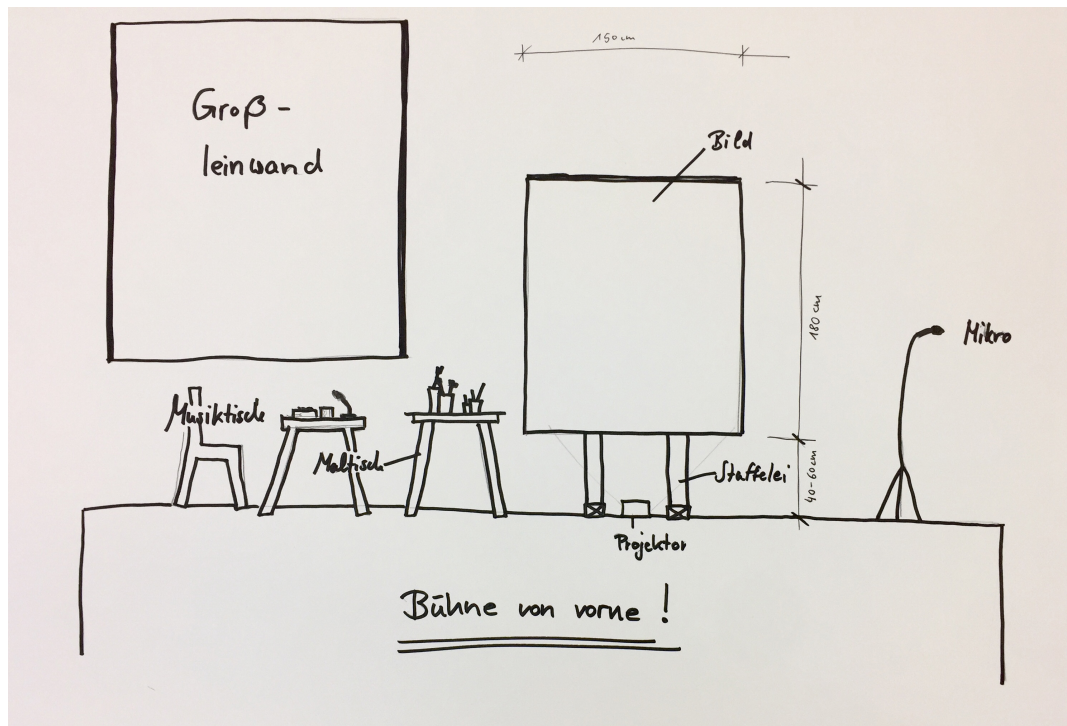 Groß-
leinwand
150 cm
Bild
180 cm
Mikro
Musiktisch
Maltisch
Staffelei
40-60cm
Projektor
Bühne von vorne!